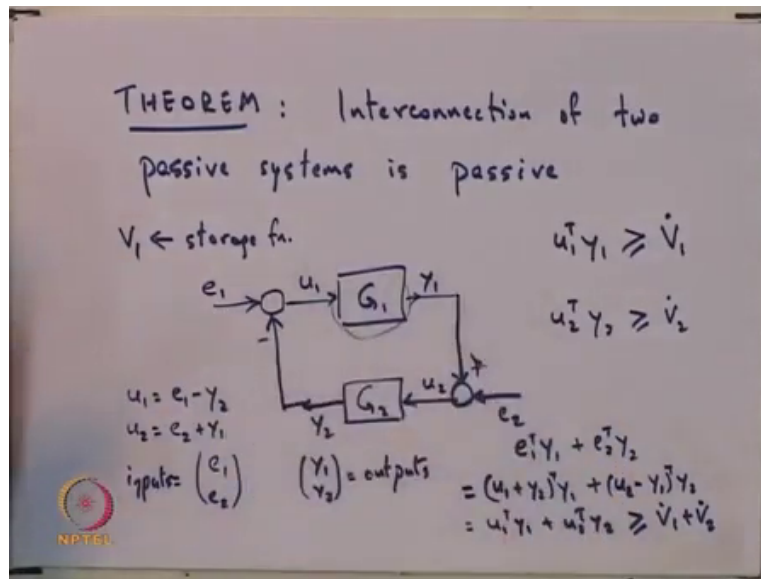 THEOREM : Interconnection of two
passive systems is passive
V₁ ← storage fn.
u₁ᵀy₁ ≥ V̇₁
u₂ᵀy₂ ≥ V̇₂
e₁ u₁ G₁ y₁
-
+
y₂ G₂ u₂ e₂
u₁ = e₁ - y₂
u₂ = e₂ + y₁
inputs = (e₁ e₂) (y₁ y₂) = outputs
e₁ᵀy₁ + e₂ᵀy₂
= (u₁+y₂)ᵀy₁ + (u₂-y₁)ᵀy₂
= u₁ᵀy₁ + u₂ᵀy₂ ≥ V̇₁+V̇₂
NPTEL